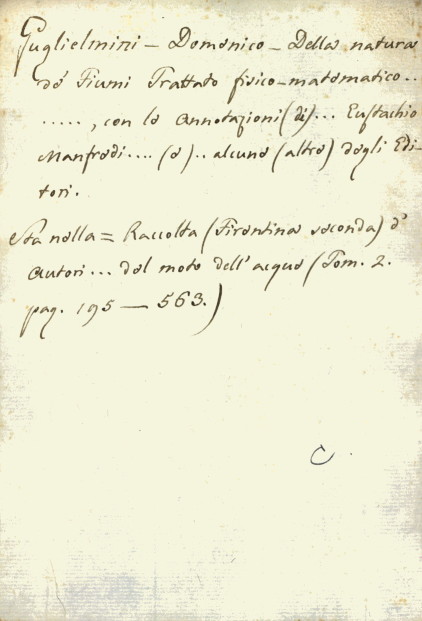 Guglielmini - Domenico - Della natura
de' Fiumi Trattato fisico-matematico..
....., con le Annotazioni (di)... Eustachio
Manfredi.... (e).. alcune (altre) degli Edi-
tori.
Sta nella = Raccolta (Fiorentina seconda) d'
Autori... del moto dell'acque (Tom. 2.
pag. 195 — 563.)
C.